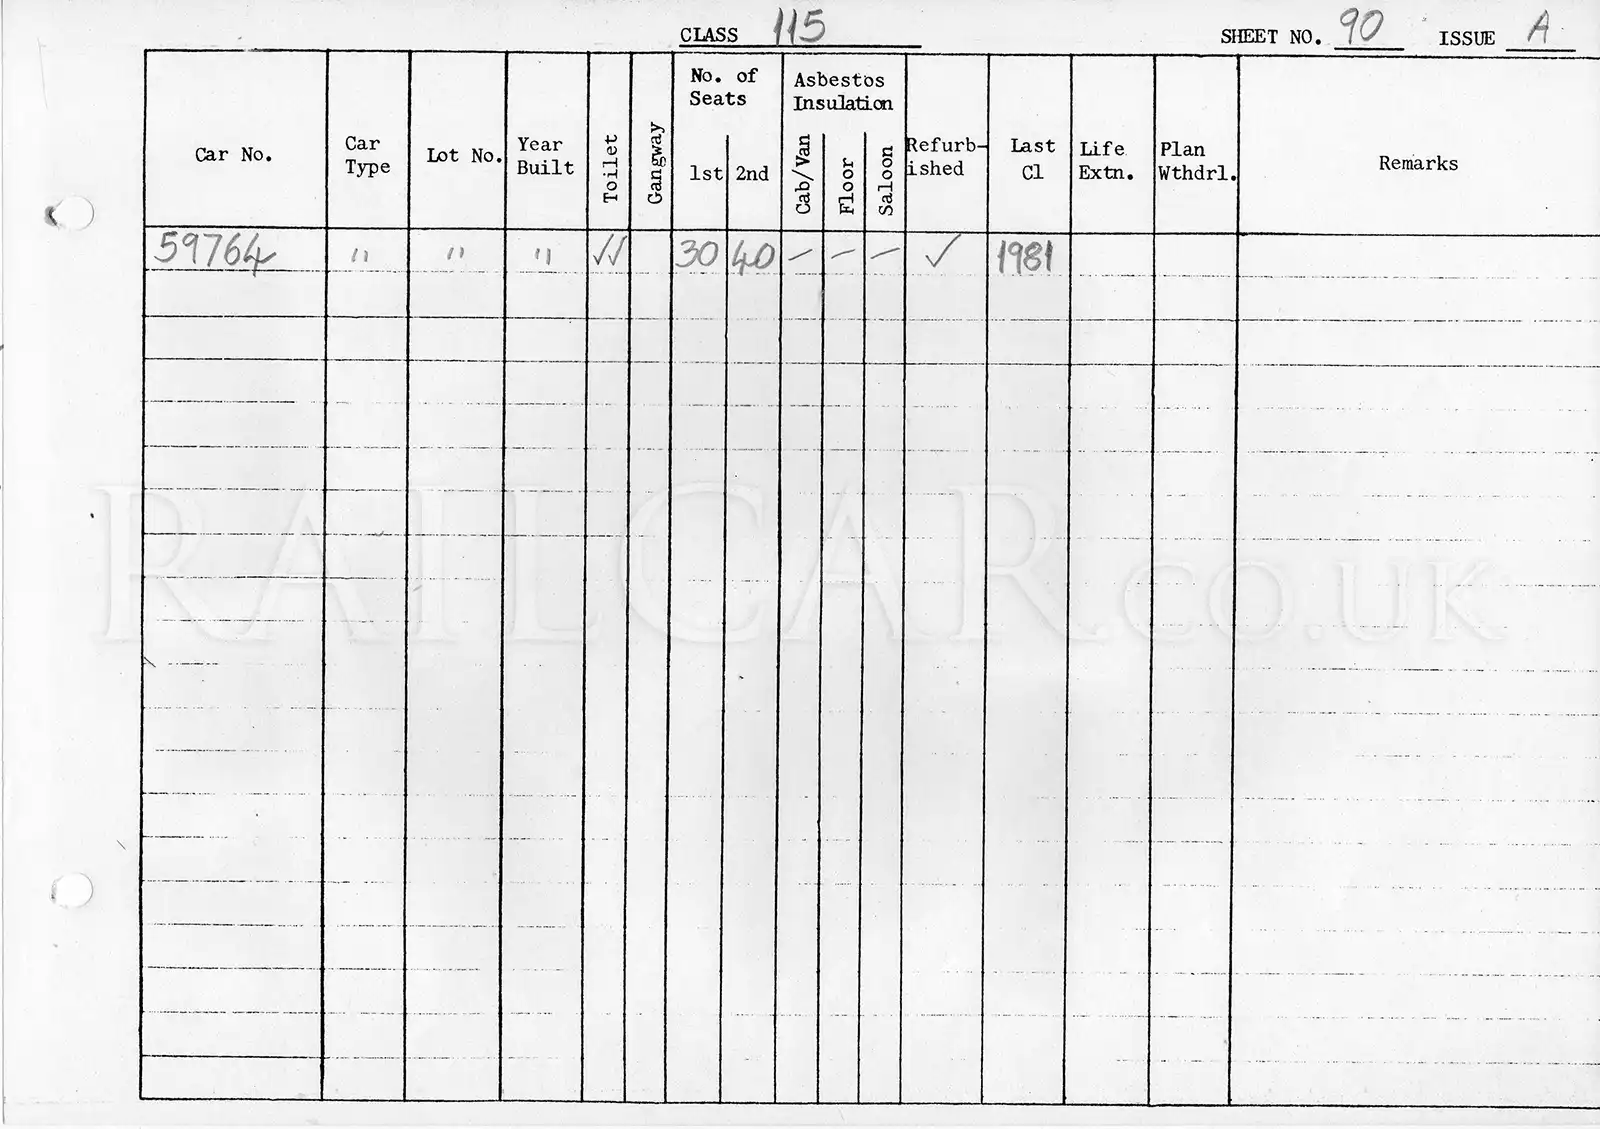 CLASS 115 SHEET NO. 90 ISSUE A
Car No. Car Type Lot No. Year Built Toilet Gangway No. of Seats 1st 2nd Asbestos Insulation Cab/Van Floor Saloon Refurb-ished Last Cl Life Extn. Plan Wthdrl. Remarks
59764 " " " ✓✓ 30 40 — — — ✓ 1981
RAILCAR.CO.UK